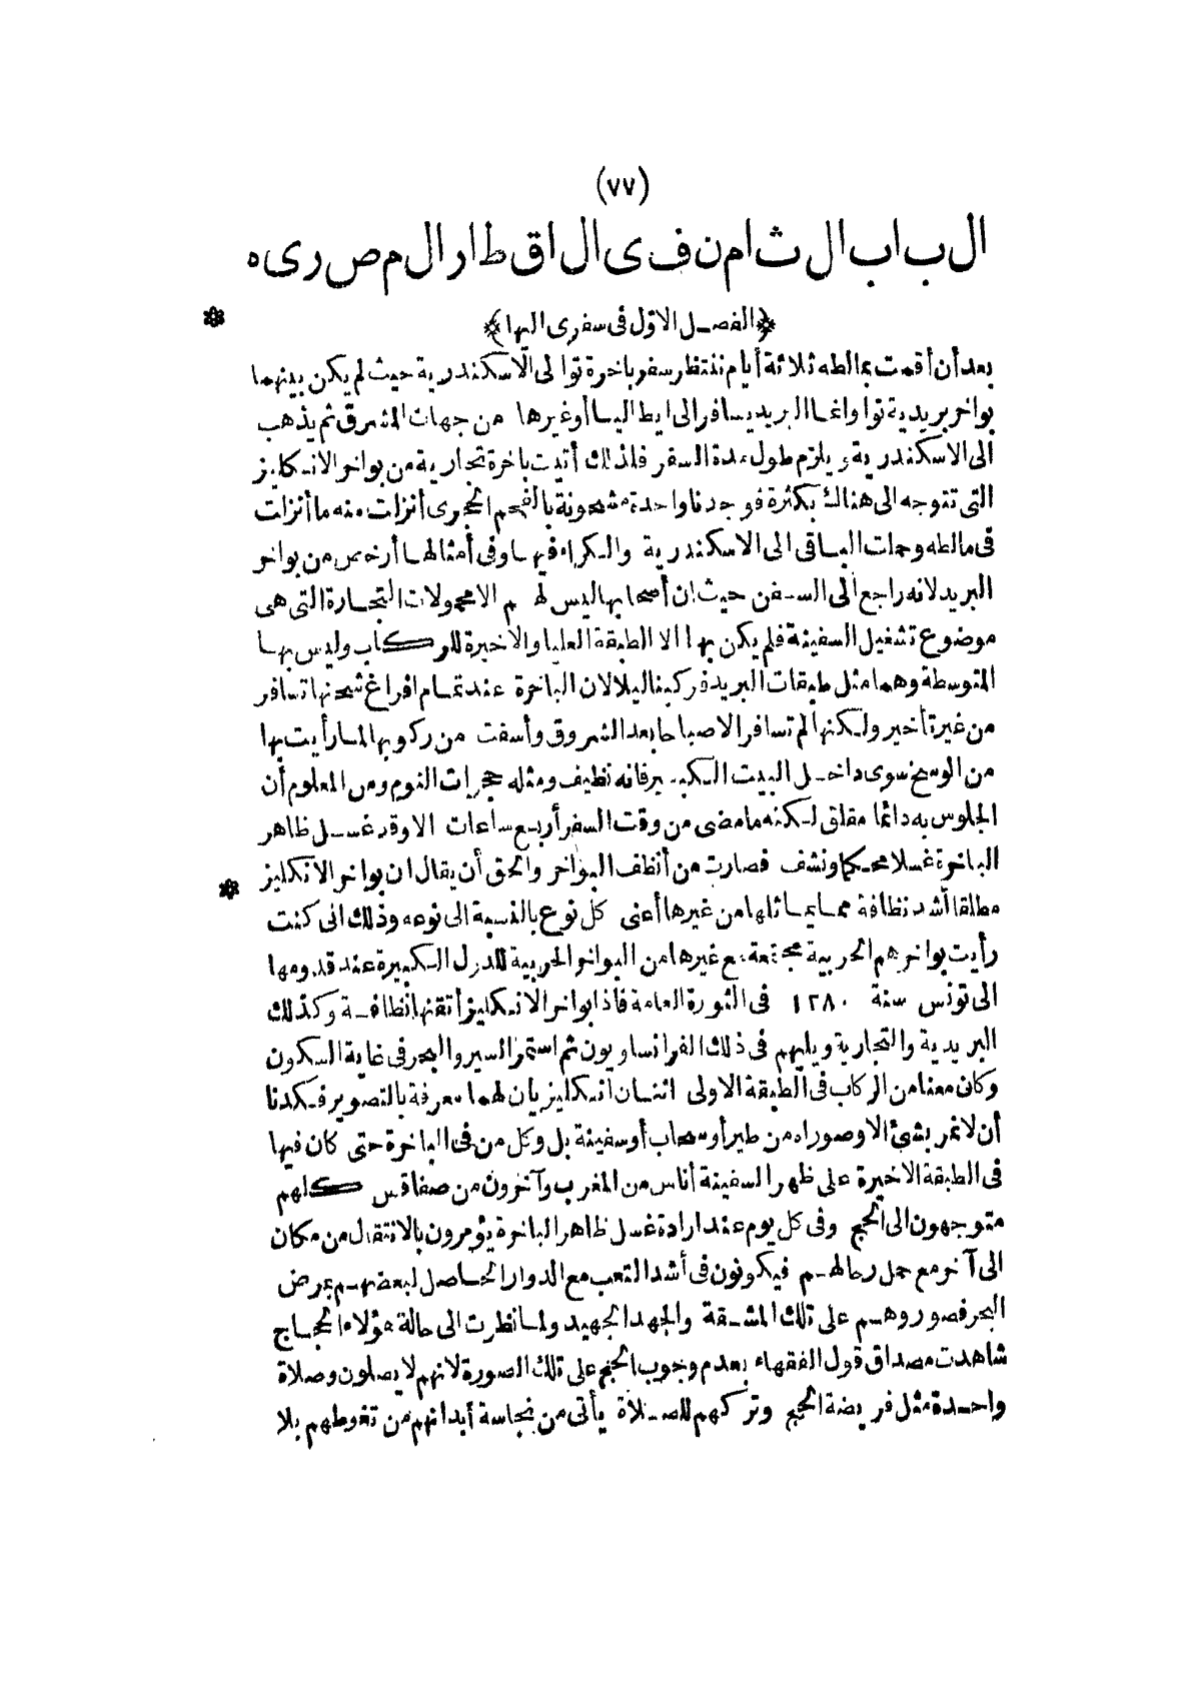 (٧٧)
الباب الثامن فى الاقطار المصريه
﴿الفصل الاوّل فى سفرى اليها﴾ *
بعد أن أقمت بمالطه ثلاثة أيام ننتظر سفر باخرة توا الى الاسكندرية حيث لم يكن بينهما
بواخر بريدية توا وانما البريد يسافر الى ايطاليا أو غيرها من جهات المشرق ثم يذهب
الى الاسكندرية ويلزم طول مدة السفر فلذلك أتيت باخرة تجارية من بواخر الانكليز
التى تتوجه الى هناك بكثرة فوجدنا واحدة مشحونة بالفحم الحجرى أنزلت منه ما أنزلت
فى مالطه وحملت الباقى الى الاسكندرية والكراء فيها وفى أمثالها أرخص من بواخر
البريد لانه راجع الى السفن حيث ان أصحابها ليس لهم الا محمولات التجارة التى هى
موضوع تشغيل السفينة فلم يكن بها الا الطبقة العليا والاخيرة للركاب وليس بها
المتوسطة وهما مثل طبقات البريد فركبنا ليلا لان الباخرة عند تمام افراغ شحنها تسافر
من غير تأخير ولكنها لم تسافر الا صباحا بعد الشروق وأسفت من ركوبها لما رأيت بها
من الوسخ سوى داخل البيت الكبير فانه نظيف ومثله حجرات النوم ومن المعلوم أن
الجلوس به دائما مقلق لكنه ما مضى من وقت السفر أربع ساعات الا وقد غسل ظاهر
الباخرة غسلا محكما ونشف فصارت من أنظف البواخر والحق أن يقال ان بواخر الانكليز *
مطلقا أشد نظافة مما يماثلها من غيرها أعنى كل نوع بالنسبة الى نوعه وذلك انى كنت
رأيت بواخرهم الحربية مجتمعة مع غيرها من البواخر الحربية للدول الكبيرة عند قدومها
الى تونس سنة ١٢٨٠ فى الثورة العامة فاذا بواخر الانكليز أتقنها نظافة وكذلك
البريدية والتجارية ويليهم فى ذلك الفرانساويون ثم استمر السير والبحر فى غاية السكون
وكان معنا من الركاب فى الطبقة الاولى اثنان انكليزيان لهما معرفة بالتصوير فكدنا
أن لا نمر بشئ الا وصوراه من طير أو سحاب أو سفينة بل وكل من فى الباخرة حتى كان فيها
فى الطبقة الاخيرة على ظهر السفينة أناس من المغرب وآخرون من صفاقس كلهم
متوجهون الى الحج وفى كل يوم عند ارادة غسل ظاهر الباخرة يؤمرون بالانتقال من مكان
الى آخر مع حمل رحالهم فيكونون فى أشد التعب مع الدوار الحاصل لبعضهم بمرض
البحر فصوروهم على تلك المشقة والجهد الجهيد ولما نظرت الى حالة هؤلاء الحجاج
شاهدت مصداق قول الفقهاء بعدم وجوب الحج على تلك الصورة لانهم لا يصلون وصلاة
واحدة مثل فريضة الحج وتركهم للصلاة يأتى من نجاسة أبدانهم من تغوطهم بلا